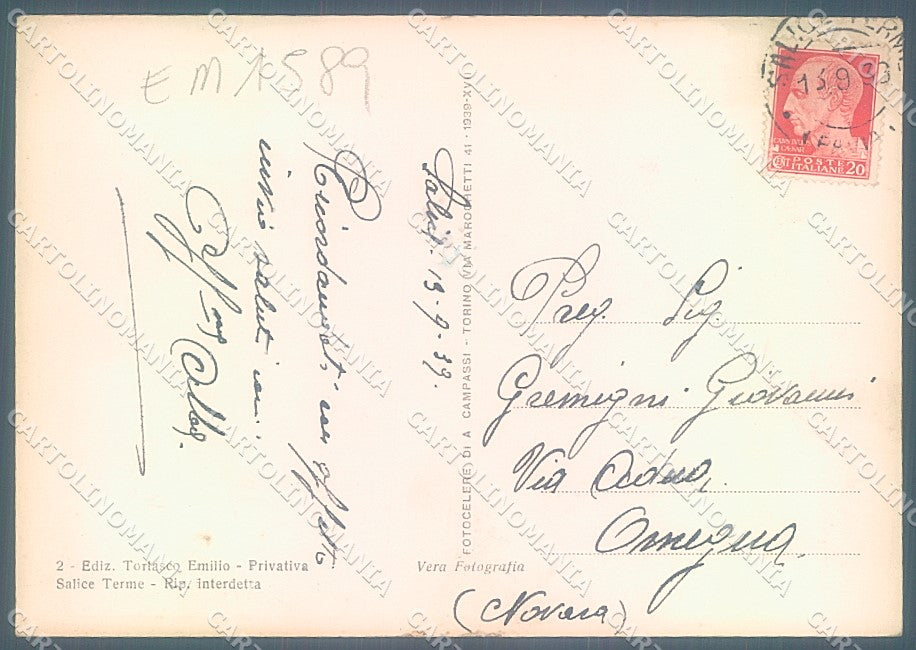 EMA589
Salice - 13-9-39.
Ricordandoti con affetto
invio saluti cari.
Preg. Sig.
Gremigni Giovanni
Via
Omegna.
(Novara)
SALICE TERME
13 9
CENT POSTE 20
ITALIANE
FOTOCELERE DI A. CAMPASSI - TORINO (VIA MAROCHETTI 41 - 1939-XVII
2 - Ediz. Torlasco Emilio - Privativa
Salice Terme - Rip. interdetta
Vera Fotografia
CARTOLINOMANIA